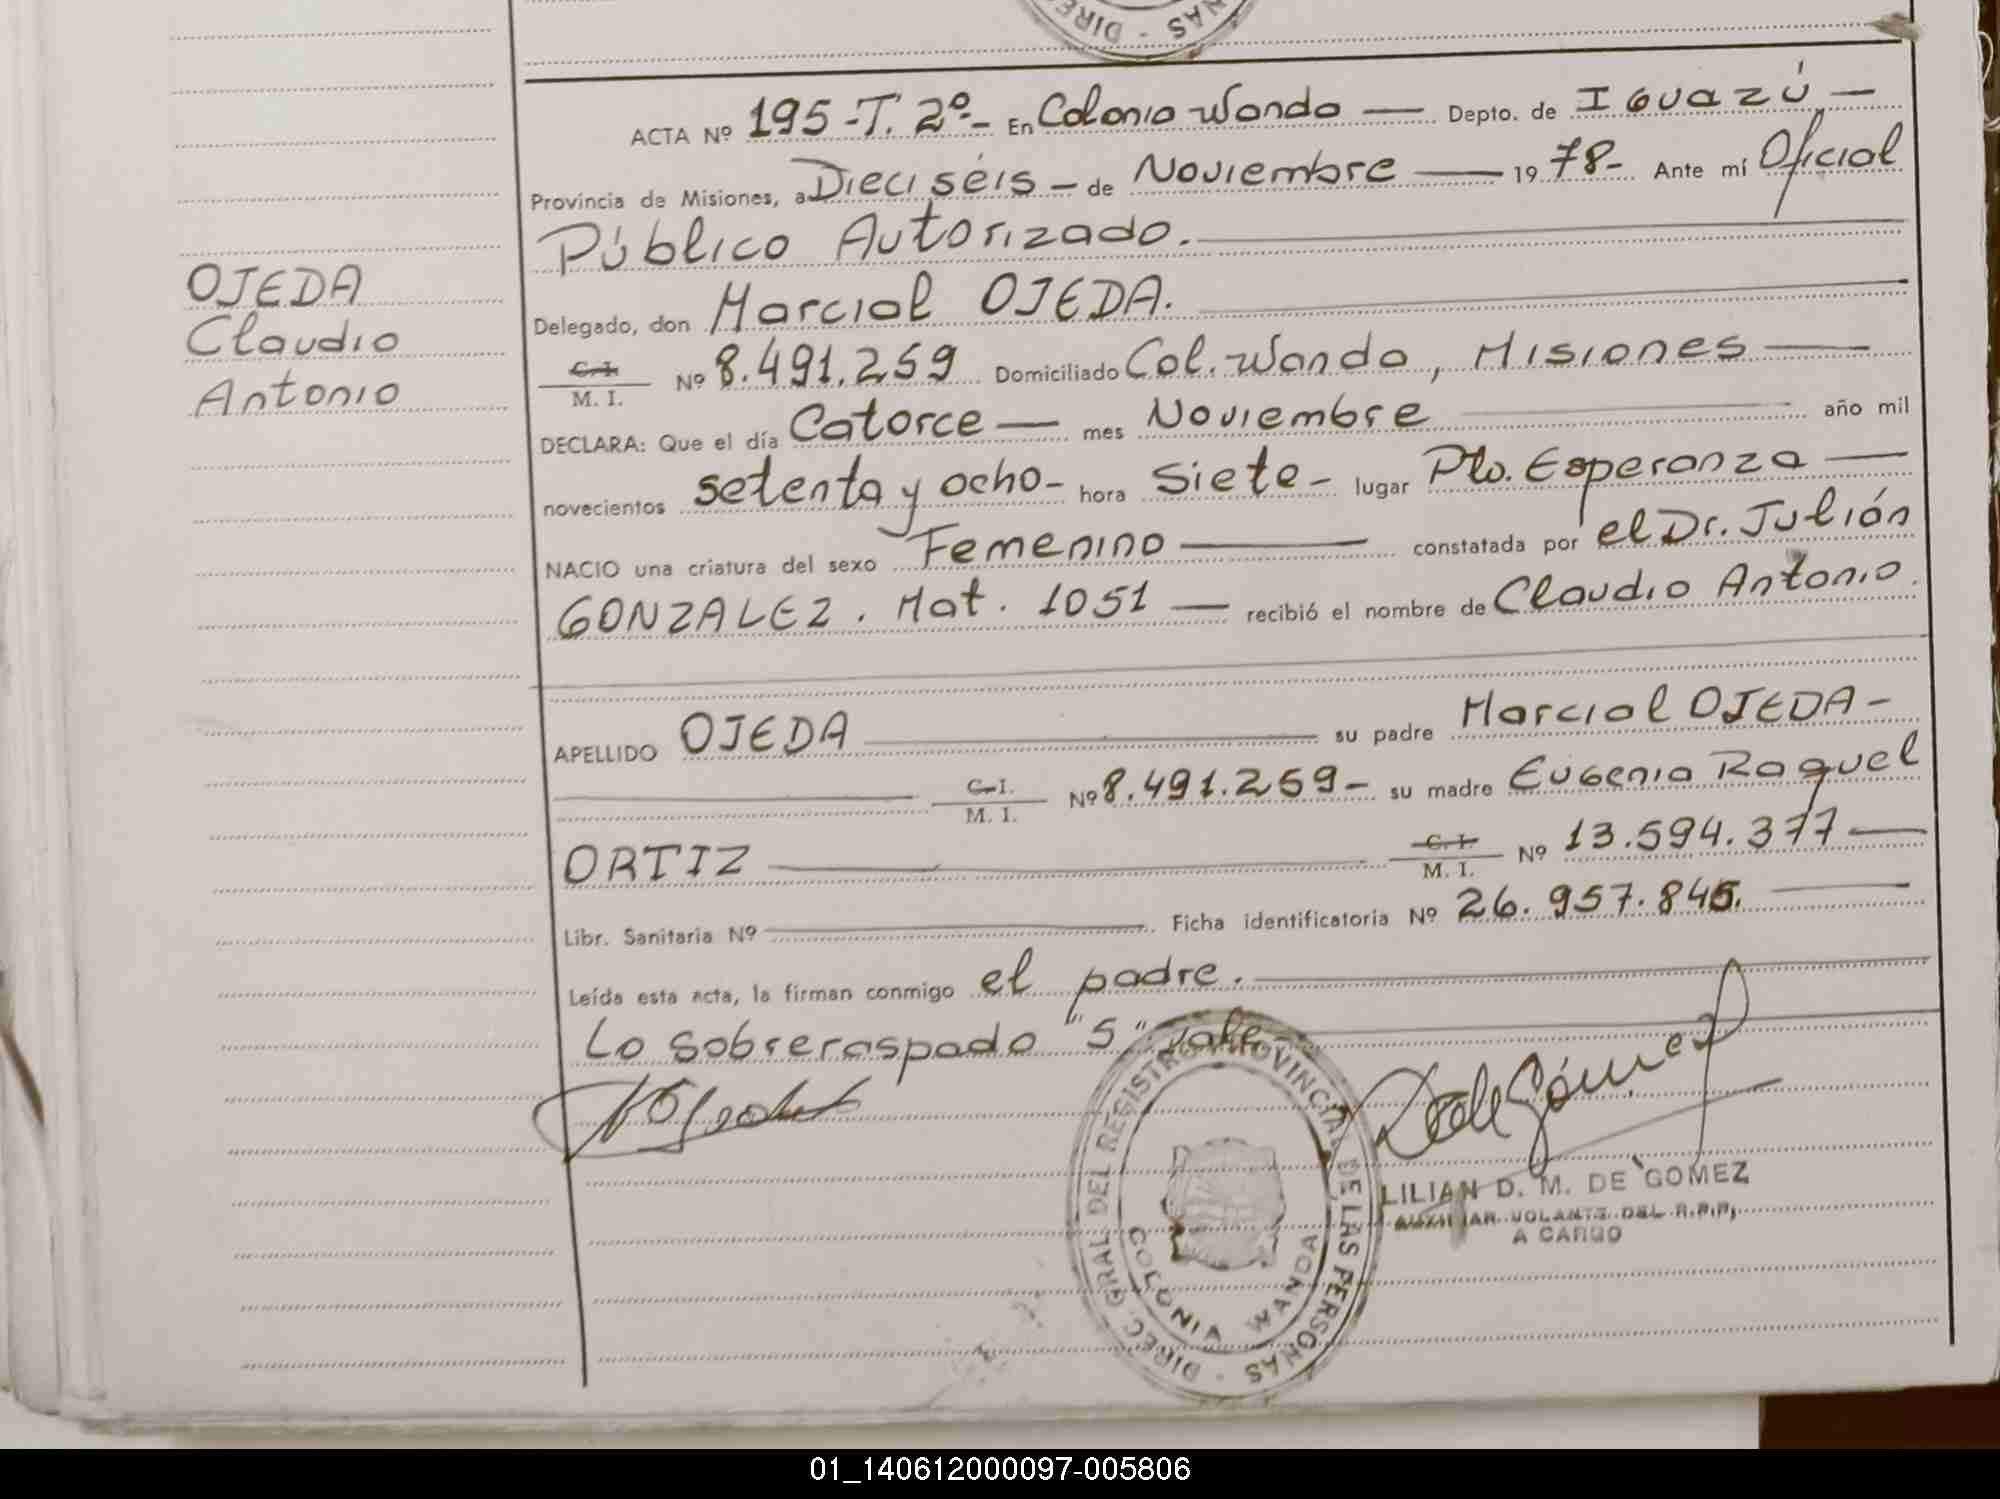 DIREC - NAS
ACTA Nº 195-T. 2º- En Colonia Wanda — Depto. de IGUAZÚ.—
Provincia de Misiones, a Dieciséis - de Noviembre — 19 78- Ante mí Oficial
Público Autorizado.
Delegado, don Marcial OJEDA.
C.I. M. I. Nº 8.491.259 Domiciliado Col. Wanda, Misiones —
DECLARA: Que el día Catorce — mes Noviembre año mil
novecientos setenta y ocho- hora Siete- lugar Pto. Esperanza —
NACIO una criatura del sexo Femenino — constatada por el Dr. Julián
GONZALEZ. Mat. 1051 — recibió el nombre de Claudio Antonio.
APELLIDO OJEDA su padre Marcial OJEDA-
C.I. M. I. Nº 8.491.259- su madre Eugenia Raquel
ORTIZ C.I. M. I. Nº 13.594.377 —
Libr. Sanitaria Nº Ficha identificatoria Nº 26.957.845.
Leída esta acta, la firman conmigo el padre.
Lo sobreraspado "5" vale
OJEDA
Claudio
Antonio
DIREC. GRAL. DEL REGISTRO PROVINCIAL DE LAS PERSONAS
COLONIA WANDA
LILIAN D. M. DE GOMEZ
AUXILIAR VOLANTE DEL R.P.P.
A CARGO
01_140612000097-005806